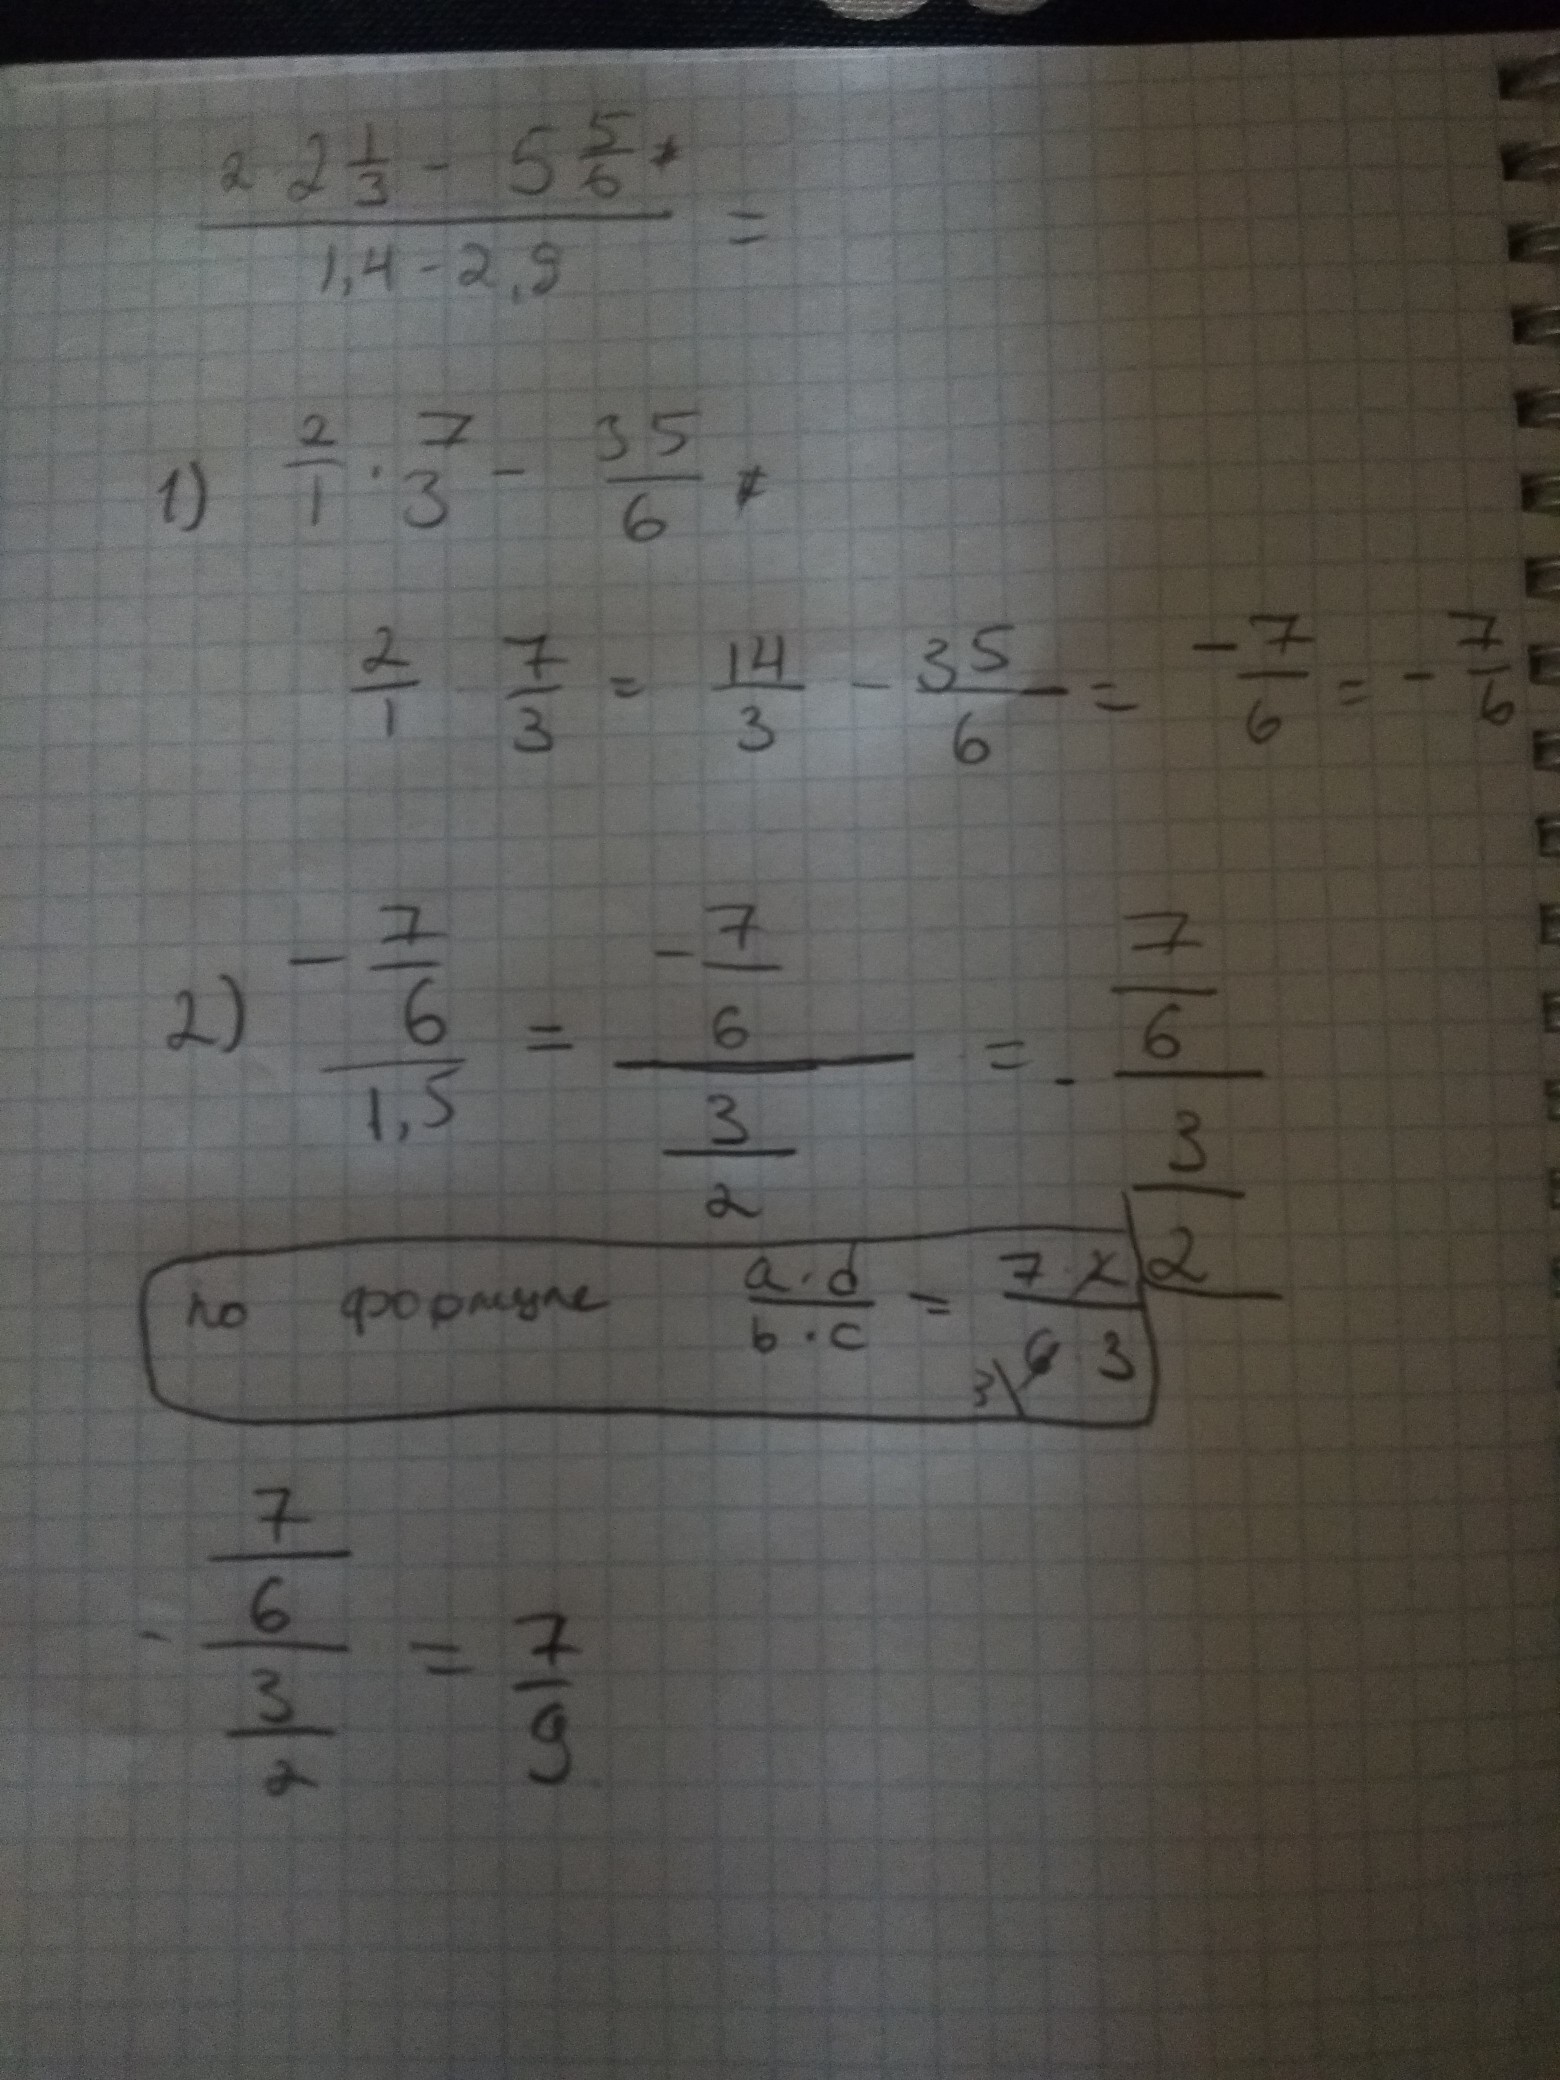 2 2 1/3 - 5 5/6 *
1,4 - 2,9 =
1) 2/1 · 7/3 - 35/6 *
2/1 7/3 = 14/3 - 35/6 = -7/6 = - 7/6
2) - 7/6 / 1,5 = -7/6 / 3/2 = - 7/6 / 3/2
по формуле a·d / b·c = 7·2 / 6·3 3
- 7/6 / 3/2 = 7/9